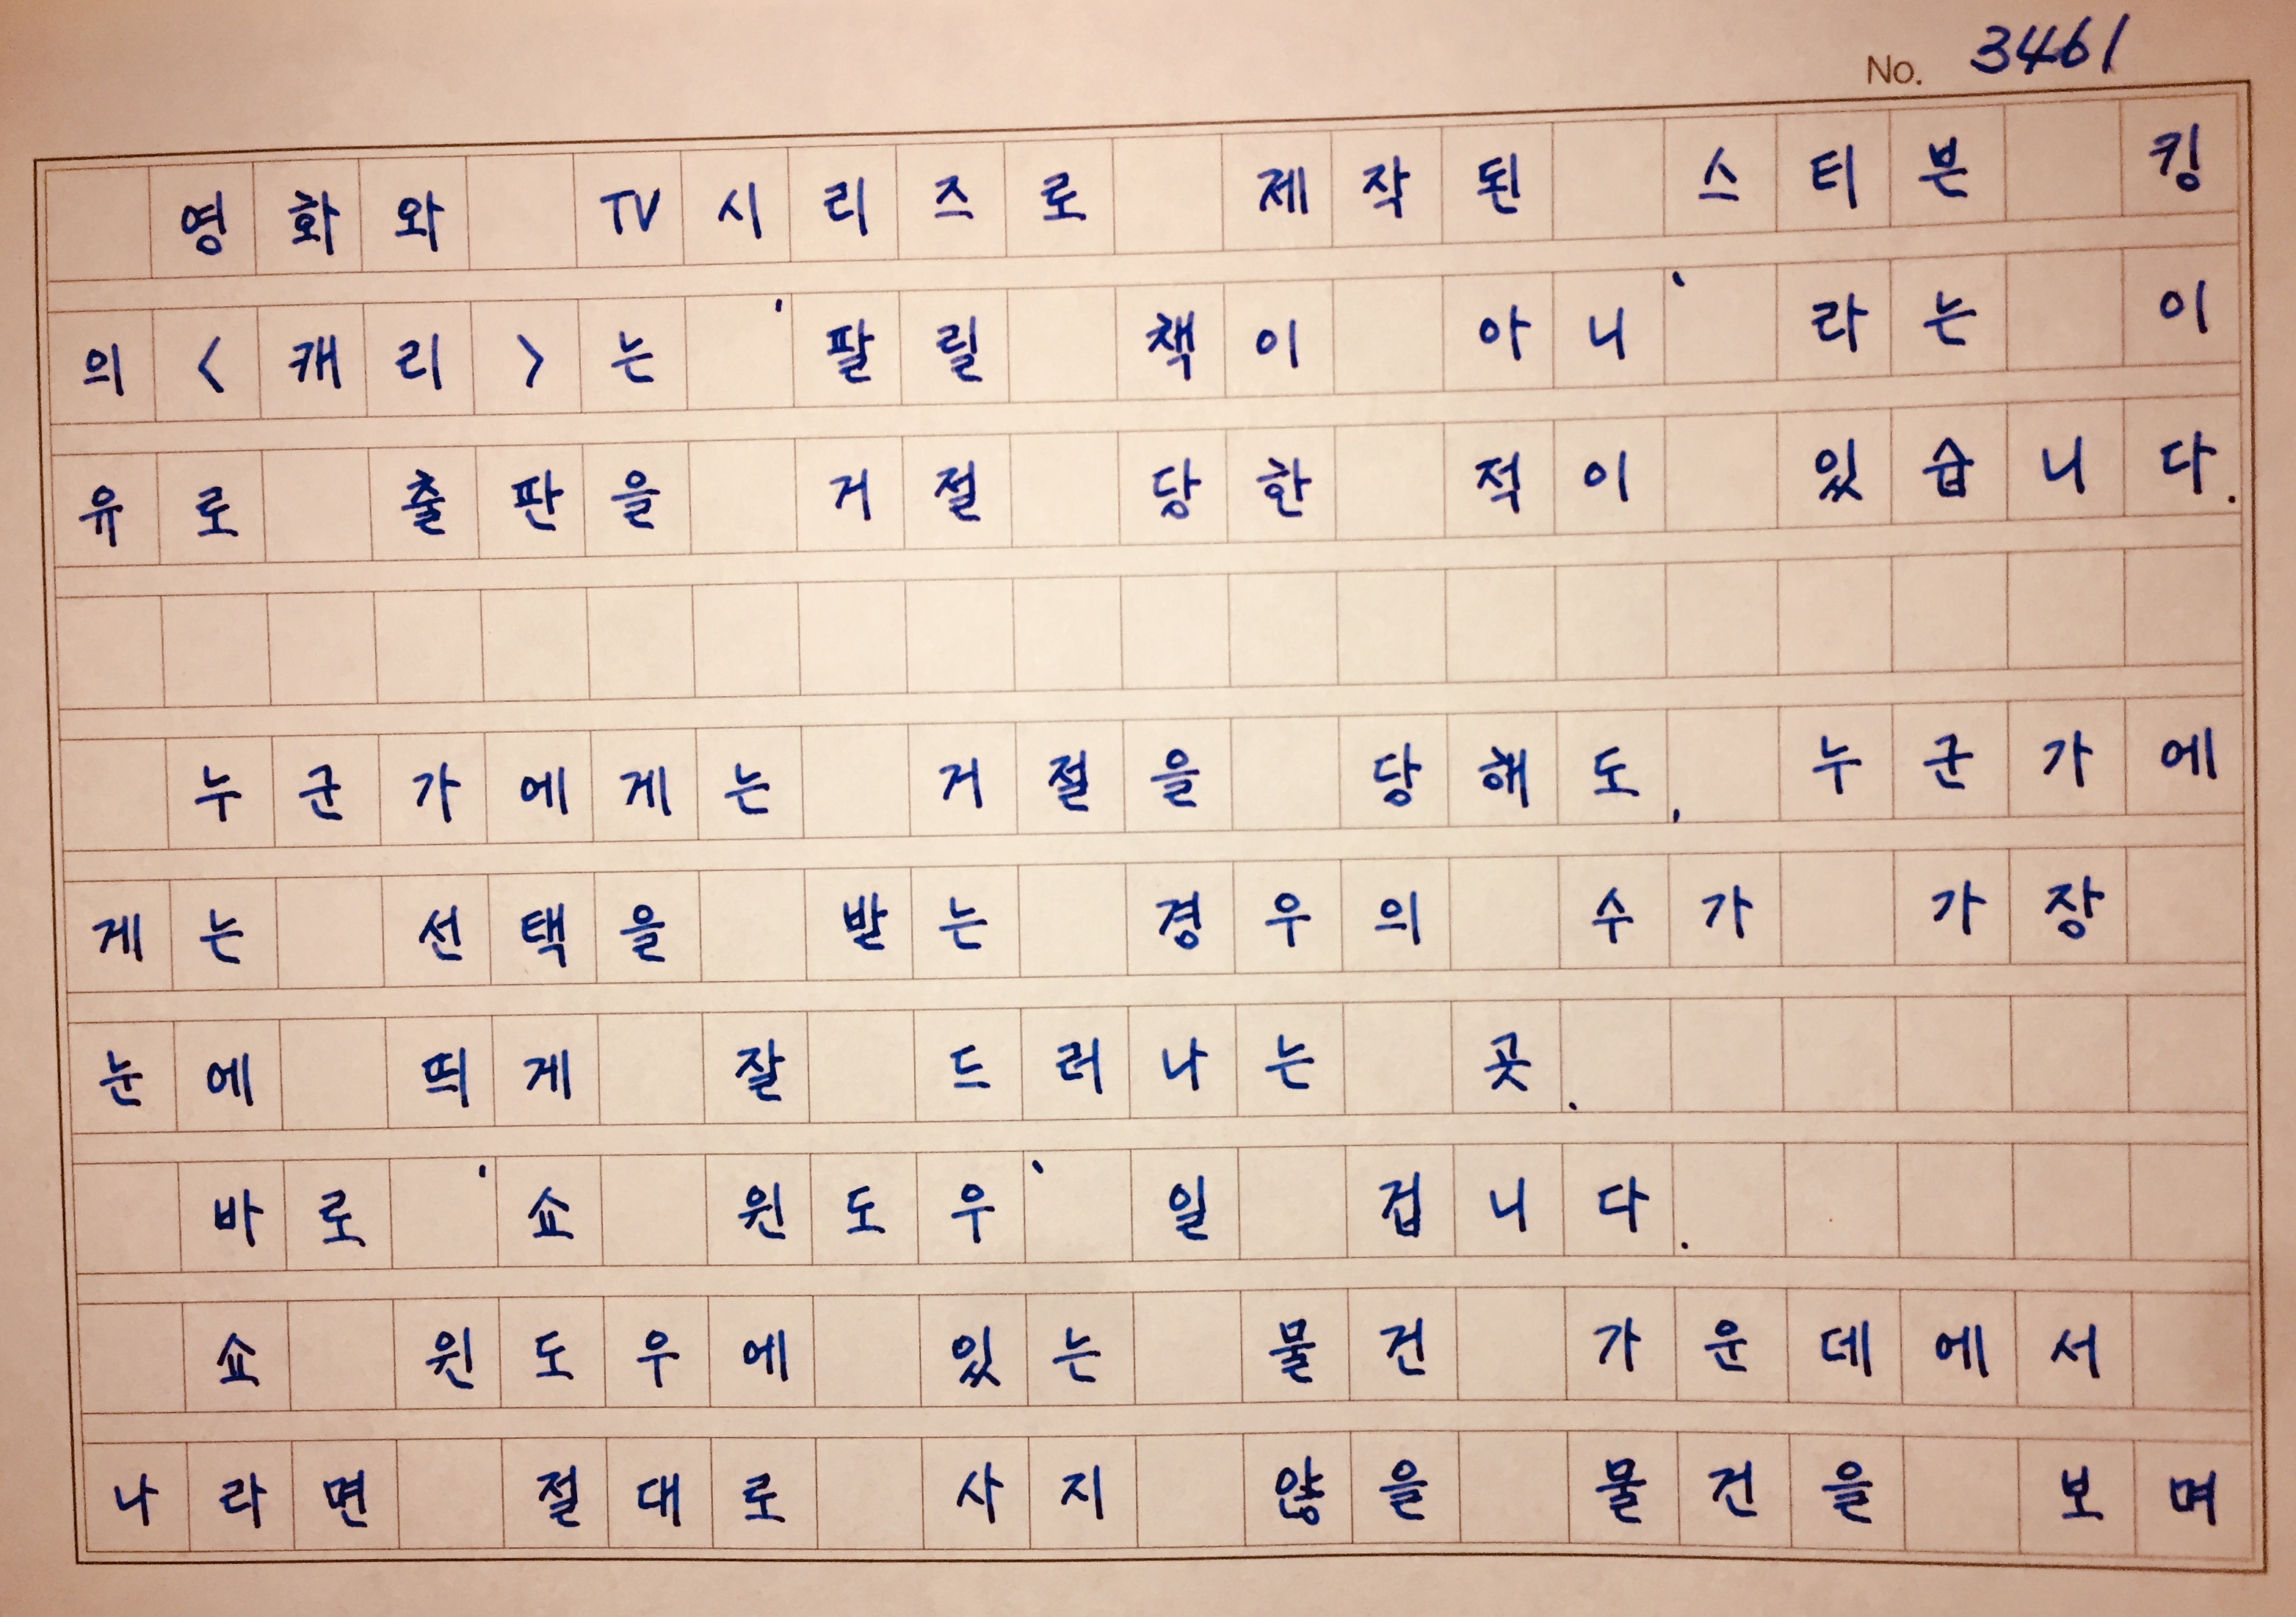 No. 3461
영화와 TV시리즈로 제작된 스티븐 킹
의 <캐리>는 '팔릴 책이 아니' 라는 이
유로 출판을 거절 당한 적이 있습니다.
누군가에게는 거절을 당해도, 누군가에
게는 선택을 받는 경우의 수가 가장
눈에 띄게 잘 드러나는 곳.
바로 '쇼 윈도우' 일 겁니다.
쇼 윈도우에 있는 물건 가운데에서
나라면 절대로 사지 않을 물건을 보며